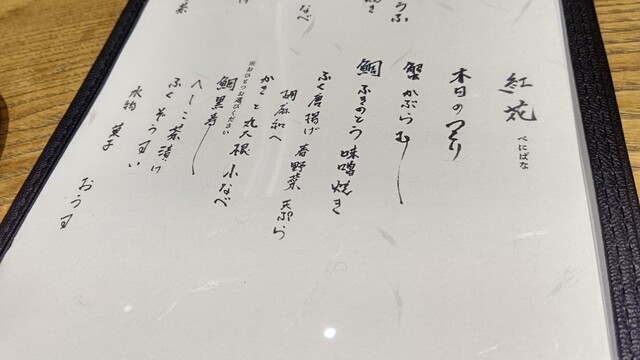 紅花
べにばな
本日のつくり
蟹かぶらむし
鯛ふきのとう味噌焼き
ふく唐揚げ 春野菜天ぷら
胡麻和へ
かきと丸大根小なべ
※おひとつお選びください
鯛黒寿し
へしこ茶漬け
ふくぞうすい
水物 菓子